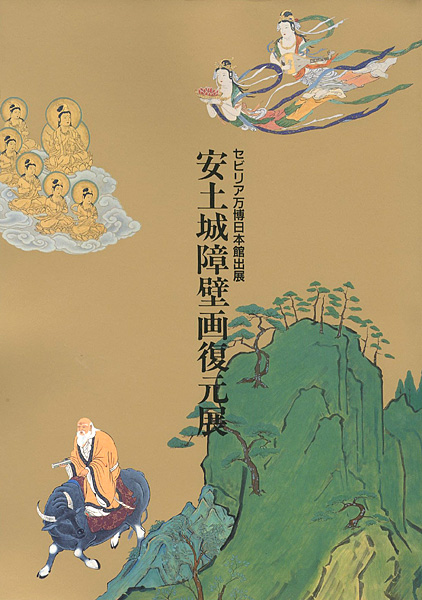 セビリア万博日本館出展
安土城障壁画復元展